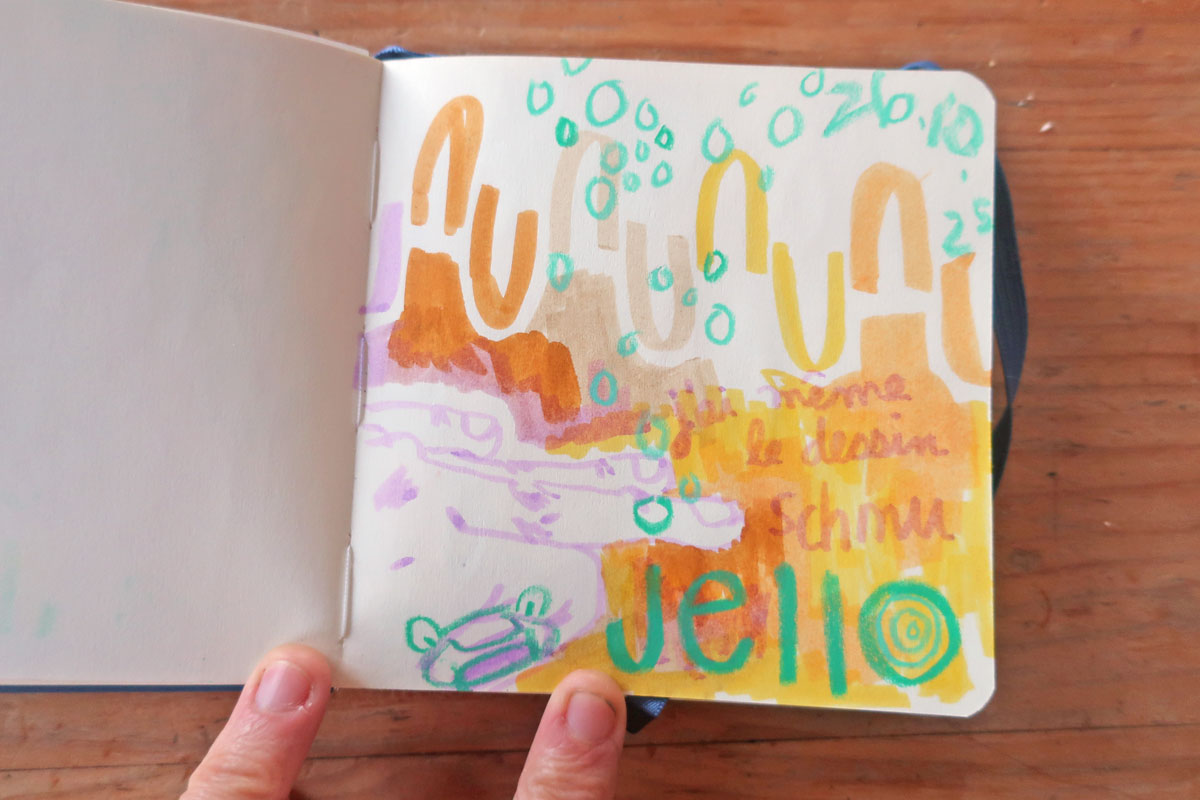 26.10
.25
j'ai même
le dessin
schmu
Jello